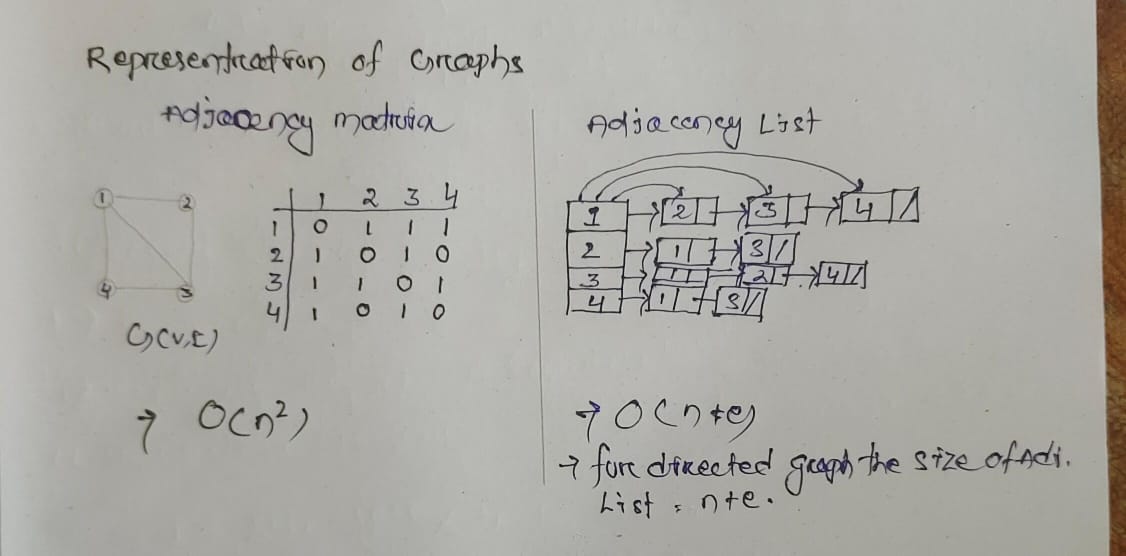 Representation of Graphs
Adjacency matrix
1 2
4 3
G(V,E)
1 2 3 4
1 0 1 1 1
2 1 0 1 0
3 1 1 0 1
4 1 0 1 0
→ O(n²)
Adjacency List
1 → 2 → 3 → 4 /
2 → 1 → 3 /
3 → 1 → 2 → 4 /
4 → 1 → 3 /
→ O(n+e)
→ for directed graph the size of Adj.
List = n+e.